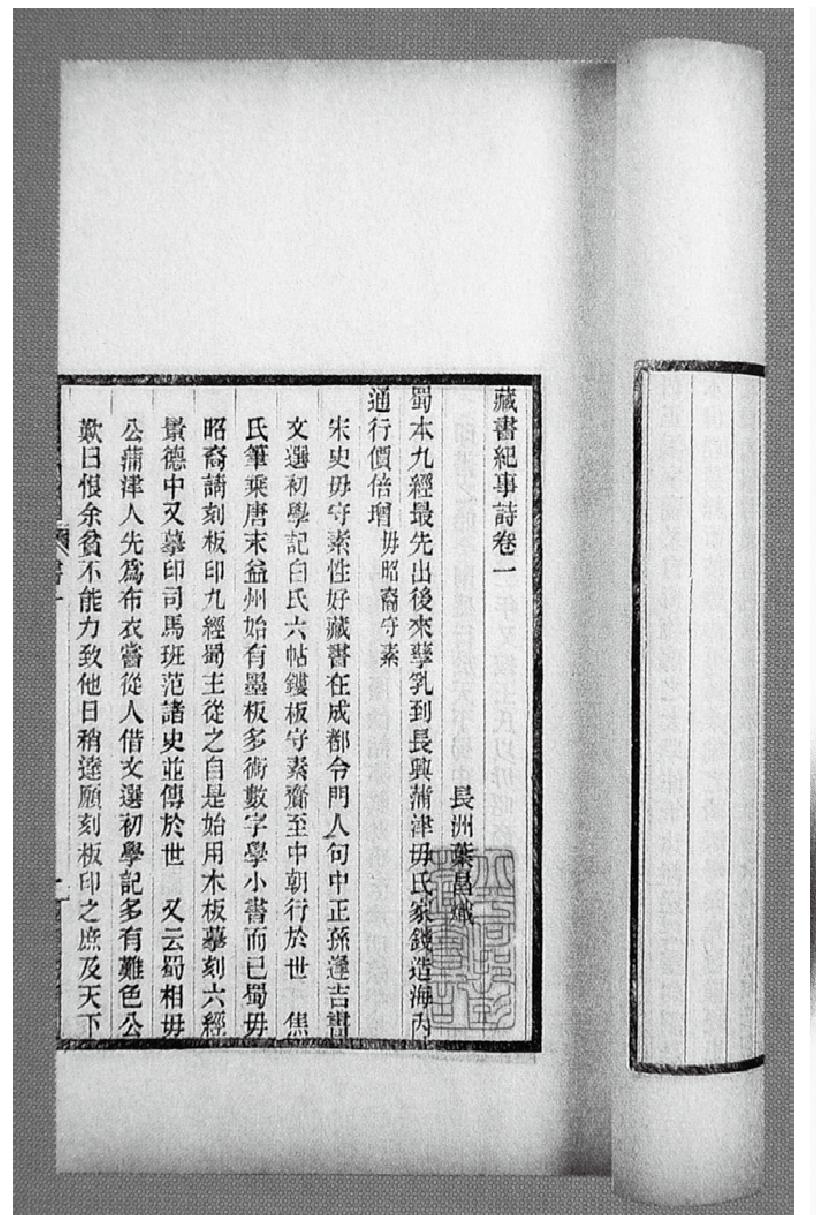 藏書紀事詩卷一
長洲葉昌熾
蜀本九經最先出後來孳乳到長興蒲津毋氏家錢造海內
通行價倍增 毋昭裔守素
宋史毋守素性好藏書在成都令門人句中正孫逢吉書
文選初學記白氏六帖鏤板守素齎至中朝行於世 焦
氏筆乘唐末益州始有墨板多術數字學小書而已蜀毋
昭裔請刻板印九經蜀主從之自是始用木板摹刻六經
景德中又摹印司馬班范諸史並傳於世 又云蜀相毋
公蒲津人先爲布衣嘗從人借文選初學記多有難色公
歎曰恨余貧不能力致他日稍達願刻板印之庶及天下